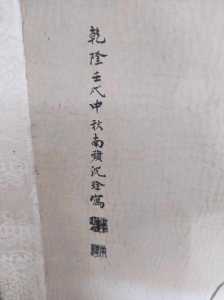 乾隆壬戌中秋南蘋沈銓寫